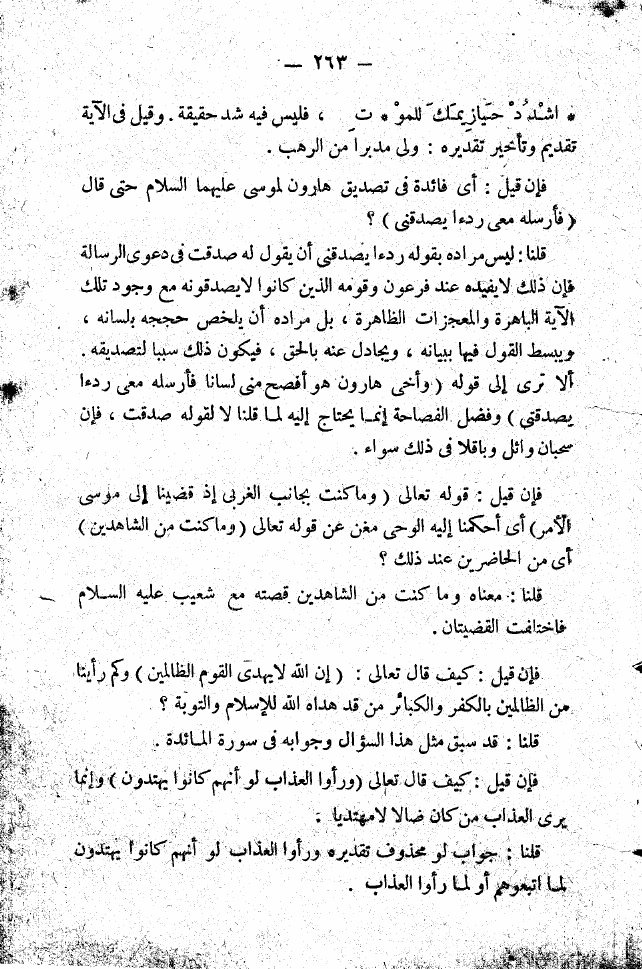 — ٢٦٣ —
* اشْدُدْ حَيَازِيمَكَ للموْ * تِ ، فليس فيه شد حقيقة . وقيل فى الآية
تقديم وتأخير تقديره : ولى مدبرا من الرهب .
فإن قيل : أى فائدة فى تصديق هارون لموسى عليهما السلام حتى قال
( فأرسله معى ردءا يصدقنى ) ؟
قلنا : ليس مراده بقوله ردءا يصدقنى أن يقول له صدقت فى دعوى الرسالة
فإن ذلك لايفيده عند فرعون وقومه الذين كانوا لايصدقونه مع وجود تلك
الآية الباهرة والمعجزات الظاهرة ، بل مراده أن يلخص حججه بلسانه ،
ويبسط القول فيها ببيانه ، ويجادل عنه بالحق ، فيكون ذلك سببا لتصديقه .
ألا ترى إلى قوله ( وأخى هارون هو أفصح منى لسانا فأرسله معى ردءا
يصدقنى ) وفضل الفصاحة إنمـا يحتاج إليه لمـا قلنا لا لقوله صدقت ، فإن
سحبان وائل وباقلا فى ذلك سواء .
فإن قيل : قوله تعالى ( وماكنت بجانب الغربى إذ قضينا إلى موسى
الأمر ) أى أحكمنا إليه الوحى مغن عن قوله تعالى ( وماكنت من الشاهدين )
أى من الحاضرين عند ذلك ؟
قلنا : معناه وما كنت من الشاهدين قصته مع شعيب عليه السـلام
فاختلفت القضيتان .
فإن قيل : كيف قال تعالى : ( إن الله لايهدى القوم الظالمين ) وكم رأينا
من الظالمين بالكفر والكبائر من قد هداه الله للإسلام والتوبة ؟
قلنا : قد سبق مثل هذا السؤال وجوابه فى سورة المـائدة .
فإن قيل : كيف قال تعالى ( ورأوا العذاب لو أنهم كانوا يهتدون ) وإنما
يرى العذاب من كان ضالا لامهتديا .
قلنا : جواب لو محذوف تقديره ورأوا العذاب لو أنهم كانوا يهتدون
لمـا اتبعوهم أو لمـا رأوا العذاب .